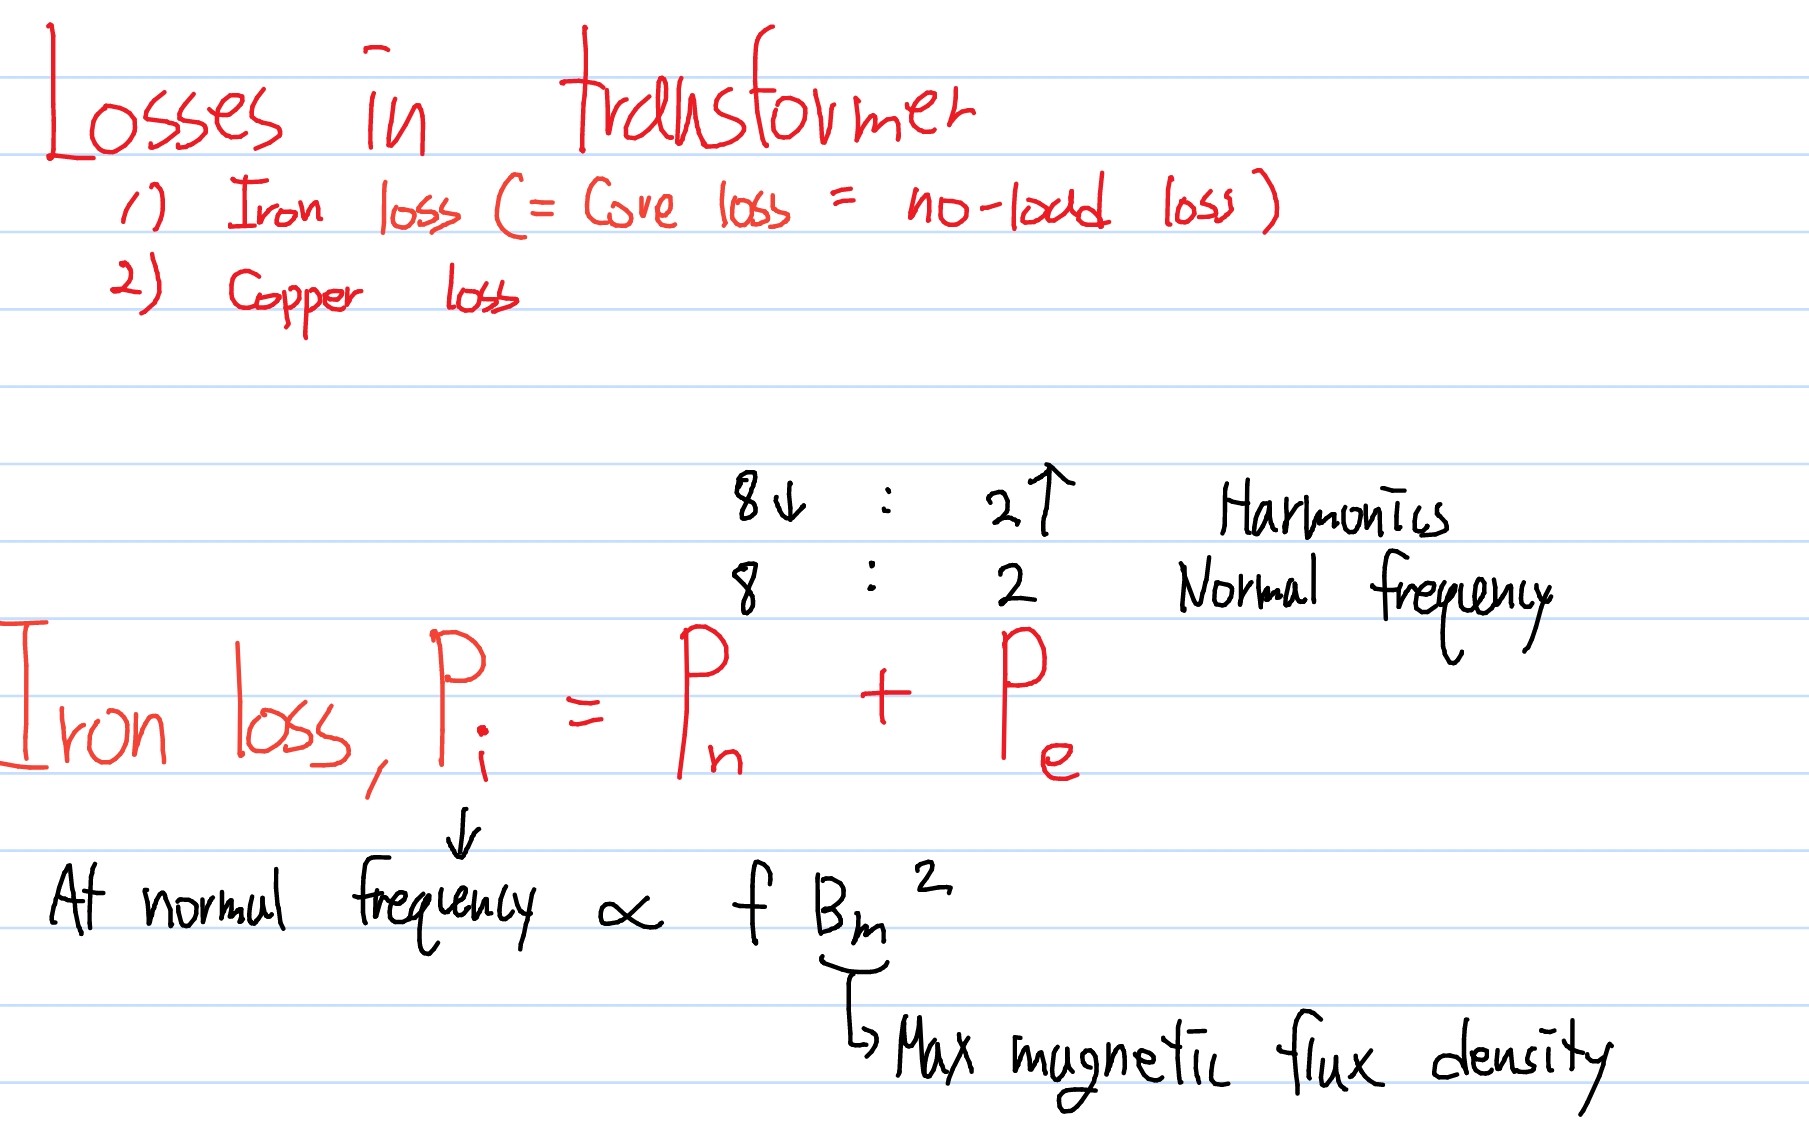 Losses in transformer
1) Iron loss (= Core loss = no-load loss)
2) Copper loss
8↓ : 2↑ Harmonics
8 : 2 Normal frequency
Iron loss, Pi = Pn + Pe
↓
At normal frequency ∝ f Bm²
↳ Max magnetic flux density